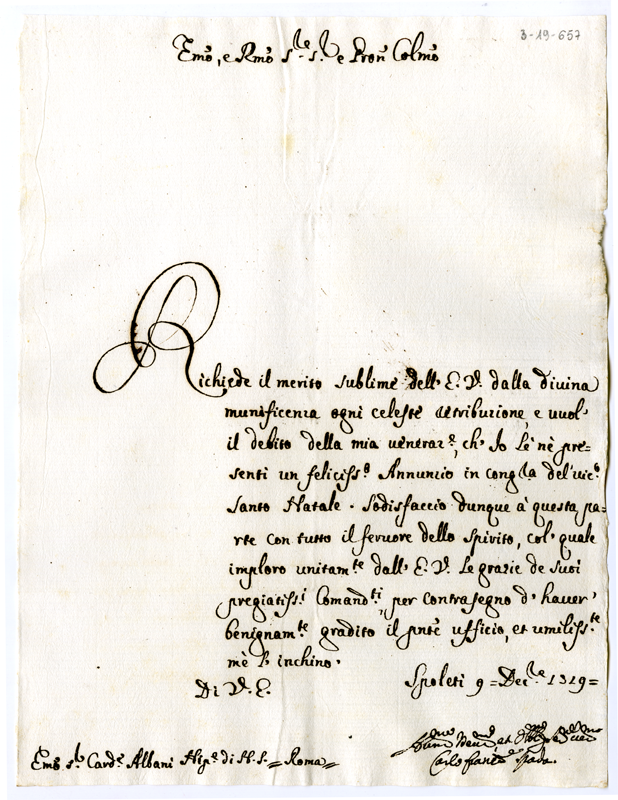 3-19-657
Emo, e Rmo Sr. Sr. e Pron Colmo
Richiede il merito sublime dell' E. V. dalla divina
munificenza ogni celeste attribuzione, e vuol'
il debito della mia veneraze, ch' Io Le nè pre=
senti un felicisso Annunzio in congla del' vico
Santo Natale. Sodisfaccio dunque à questa pa=
rte con tutto il fervore dello spirito, col' quale
imploro unitamte dall' E. V. Le grazie de suoi
pregiatissi Comandti, per contrasegno d' haver'
benignamte gradito il pnte ufficio, et umilisste
mè l' inchino.
Di V. E.
Spoleti 9 = Dec
Emo Sr. Carde Albani Nipe di N. S. = Roma =
Carlo Spada